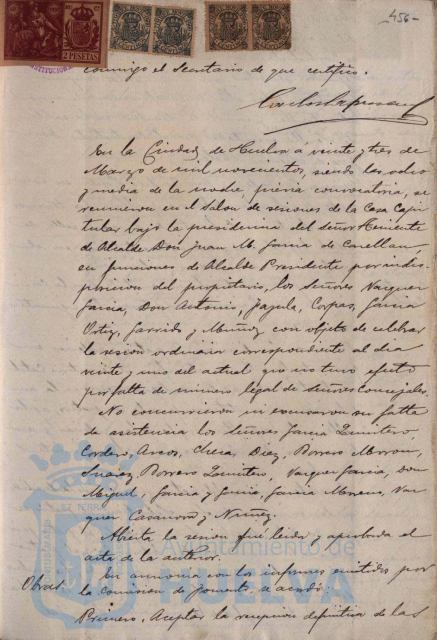 456-
2 PESETAS
conmigo el Secretario de que certifico.
En la Ciudad de Huelva á veinte y tres de
Marzo de mil novecientos, siendo las ocho
y media de la noche, previa convocatoria, se
reunieron en el Salon de sesiones de la Casa Capi-
tular bajo la presidencia del señor Teniente
de Alcalde Don Juan M. Garcia de
en funciones de Alcalde Presidente por indis-
posicion del propietario, los Señores Vazquez
Garcia, Don Antonio, Jazula, Corpas, Garcia
Ortiz, Garrido y Muñoz con objeto de celebrar
la sesion ordinaria correspondiente al dia
veinte y uno del actual que no tuvo efecto
por falta de número legal de señores Concejales.
No concurrieron ni escusaron su falta
de asistencia los señores Garcia Quintero,
Cordero, Checa, Diaz, Borrero Morron,
Suarez, Borrero Quintero, Vazquez Garcia, Don
Miguel, Garcia y Garcia, Garcia Moreno, Vaz
quez Casanova y Nuñez.
Abierta la sesion fué leida y aprobada el
acta de la anterior.
Obras. En armonia con los informes emitidos por
la Comision de Fomento, se acordó:
Primero. Aceptar la recepcion definitiva de las
Ayuntamiento de
HUELVA